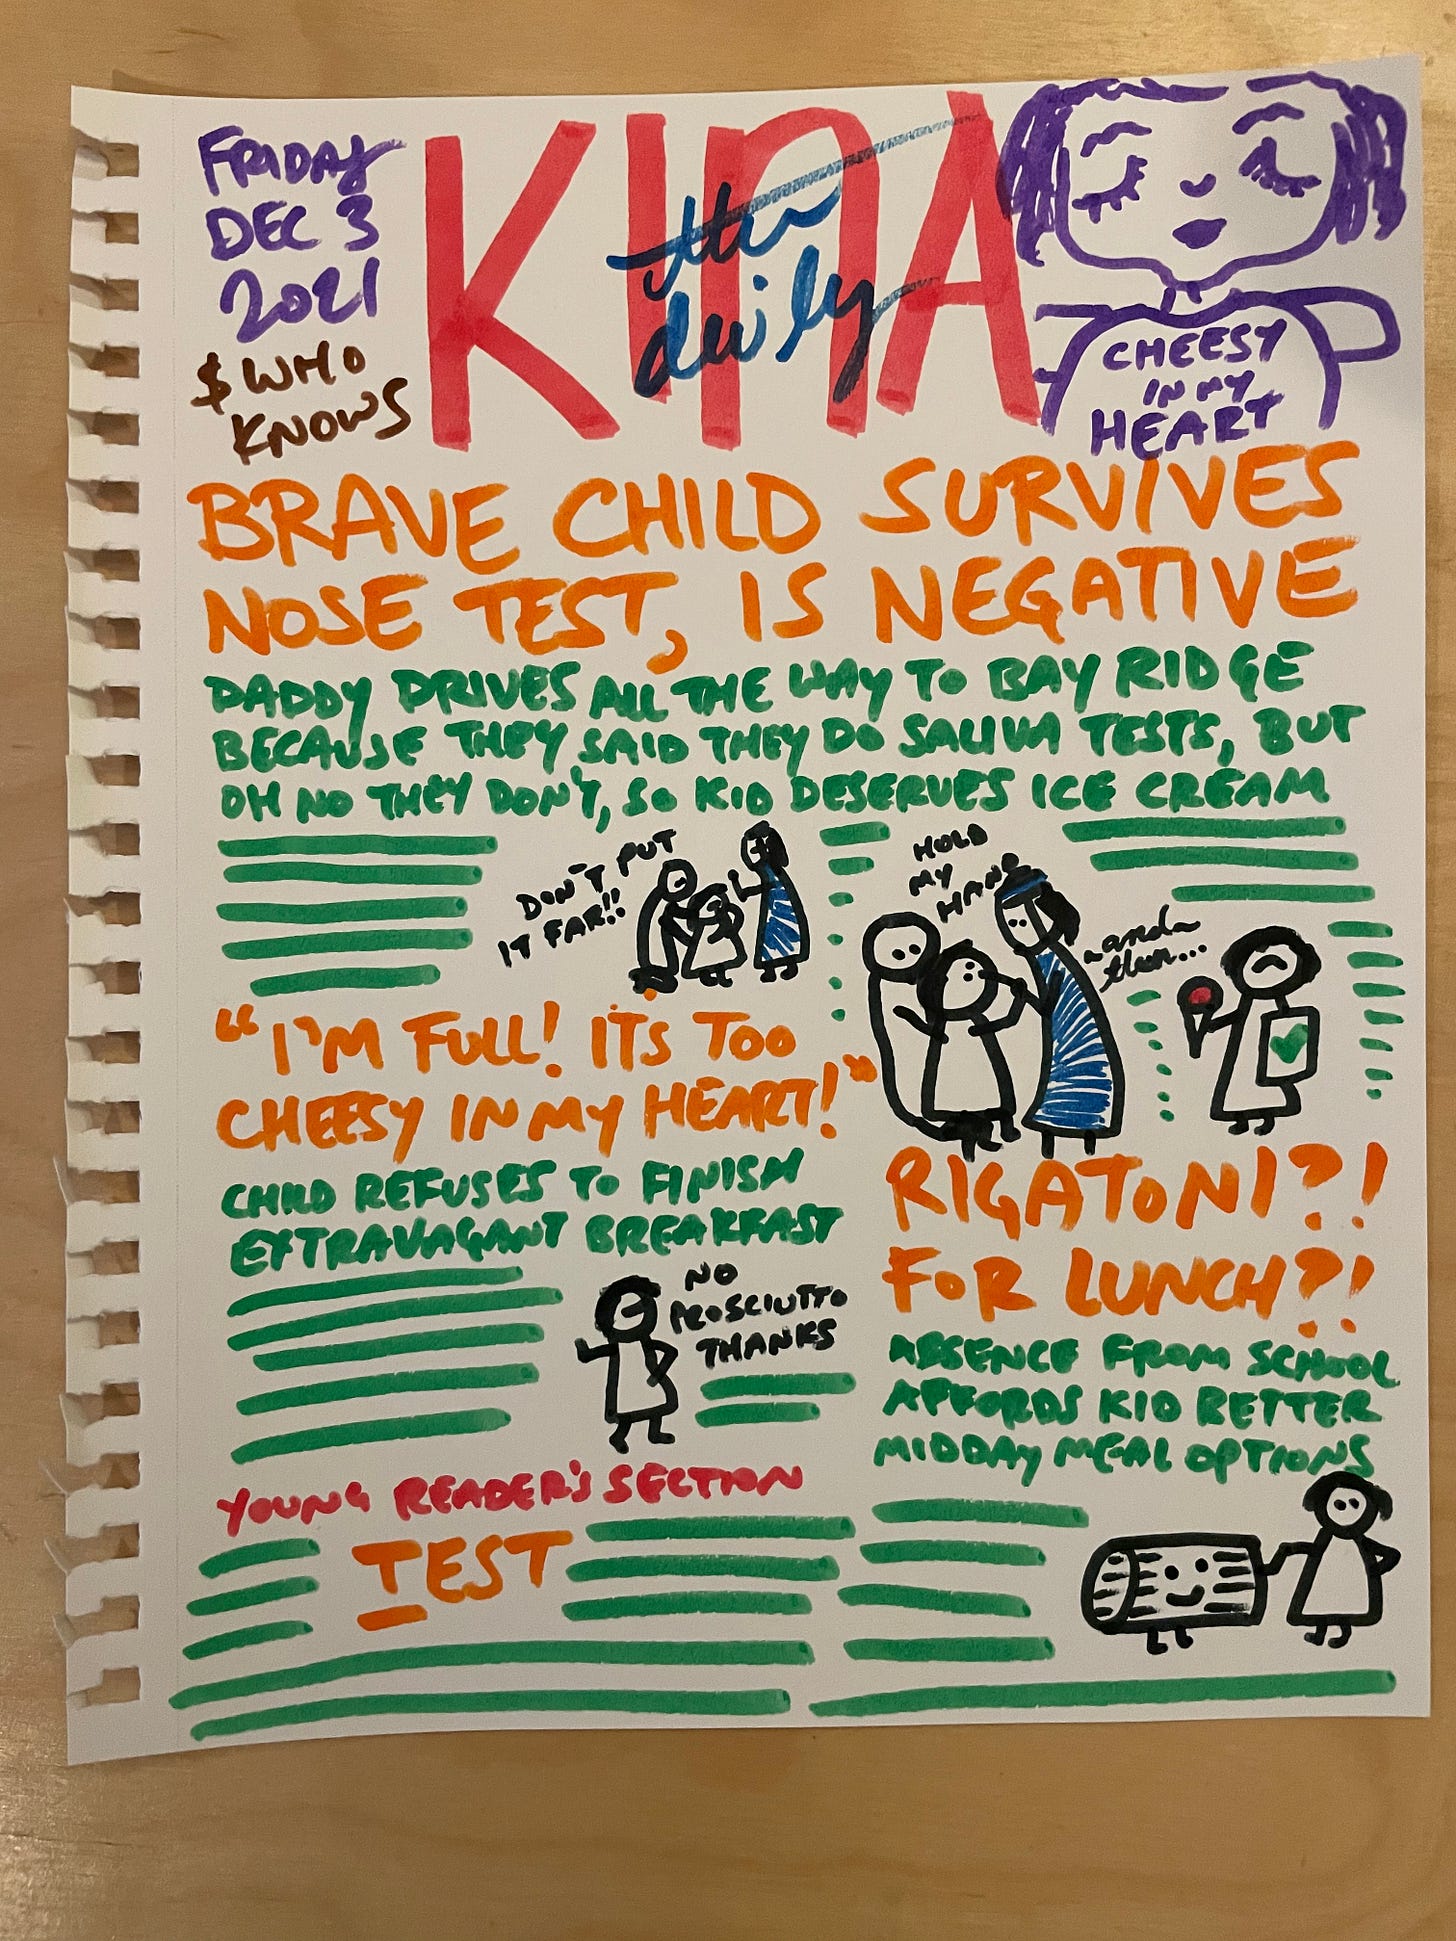 FRIDAY
DEC 3
2021
$ WHO
KNOWS
KINA
the
daily
CHEESY
IN MY
HEART
BRAVE CHILD SURVIVES
NOSE TEST, IS NEGATIVE
DADDY DRIVES ALL THE WAY TO BAY RIDGE
BECAUSE THEY SAID THEY DO SALIVA TESTS, BUT
OH NO THEY DON'T, SO KID DESERVES ICE CREAM
DON'T PUT
IT FAR!!
HOLD
MY
HAND
...and
then...
"I'M FULL! IT'S TOO
CHEESY IN MY HEART!"
CHILD REFUSES TO FINISH
EXTRAVAGANT BREAKFAST
NO
PROSCIUTTO
THANKS
RIGATONI?!
FOR LUNCH?!
ABSENCE FROM SCHOOL
AFFORDS KID BETTER
MIDDAY MEAL OPTIONS
YOUNG READER'S SECTION
TEST